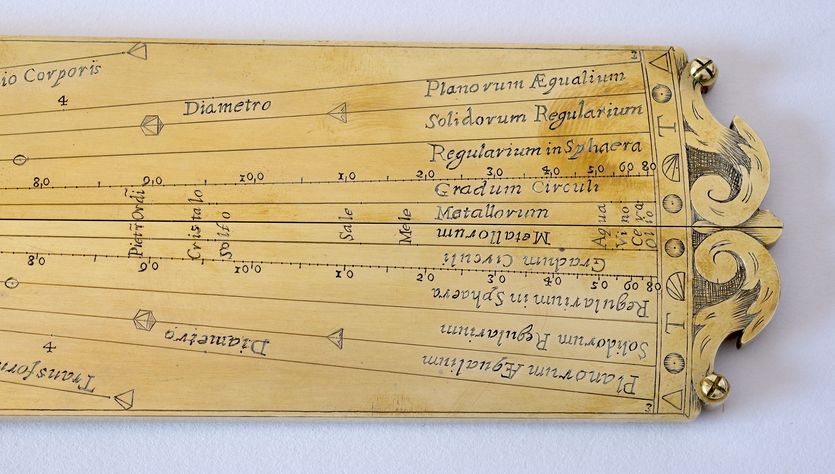 io Corporis
4
Diametro
3
Planorum Ægualium
Solidorum Regularium
Regularium in Sphaera
8,0 9,0 10,0 1,0 20 30 40 50 60 80
Gradum Circuli
Pietr̃ Ordi Cristalo Solfo Sale Mele Metallorum Aqua Vino Cera Olio
Metallorum
8,0 9,0 10,0 1,0 20 30 40 50 60 80
Gradum Circuli
Regularium in Sphaera
T
T
Solidorum Regularium
Diametro
4
Planorum Ægualium
Transform
3